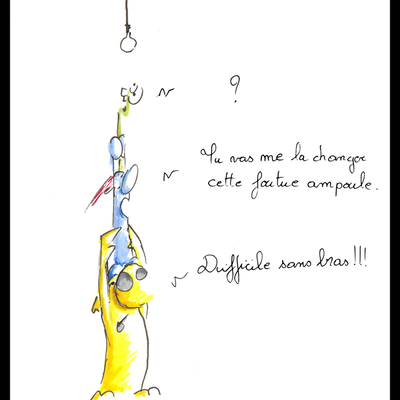 ?
Tu vas me la changer
cette foutue ampoule.
Difficile sans bras !!!